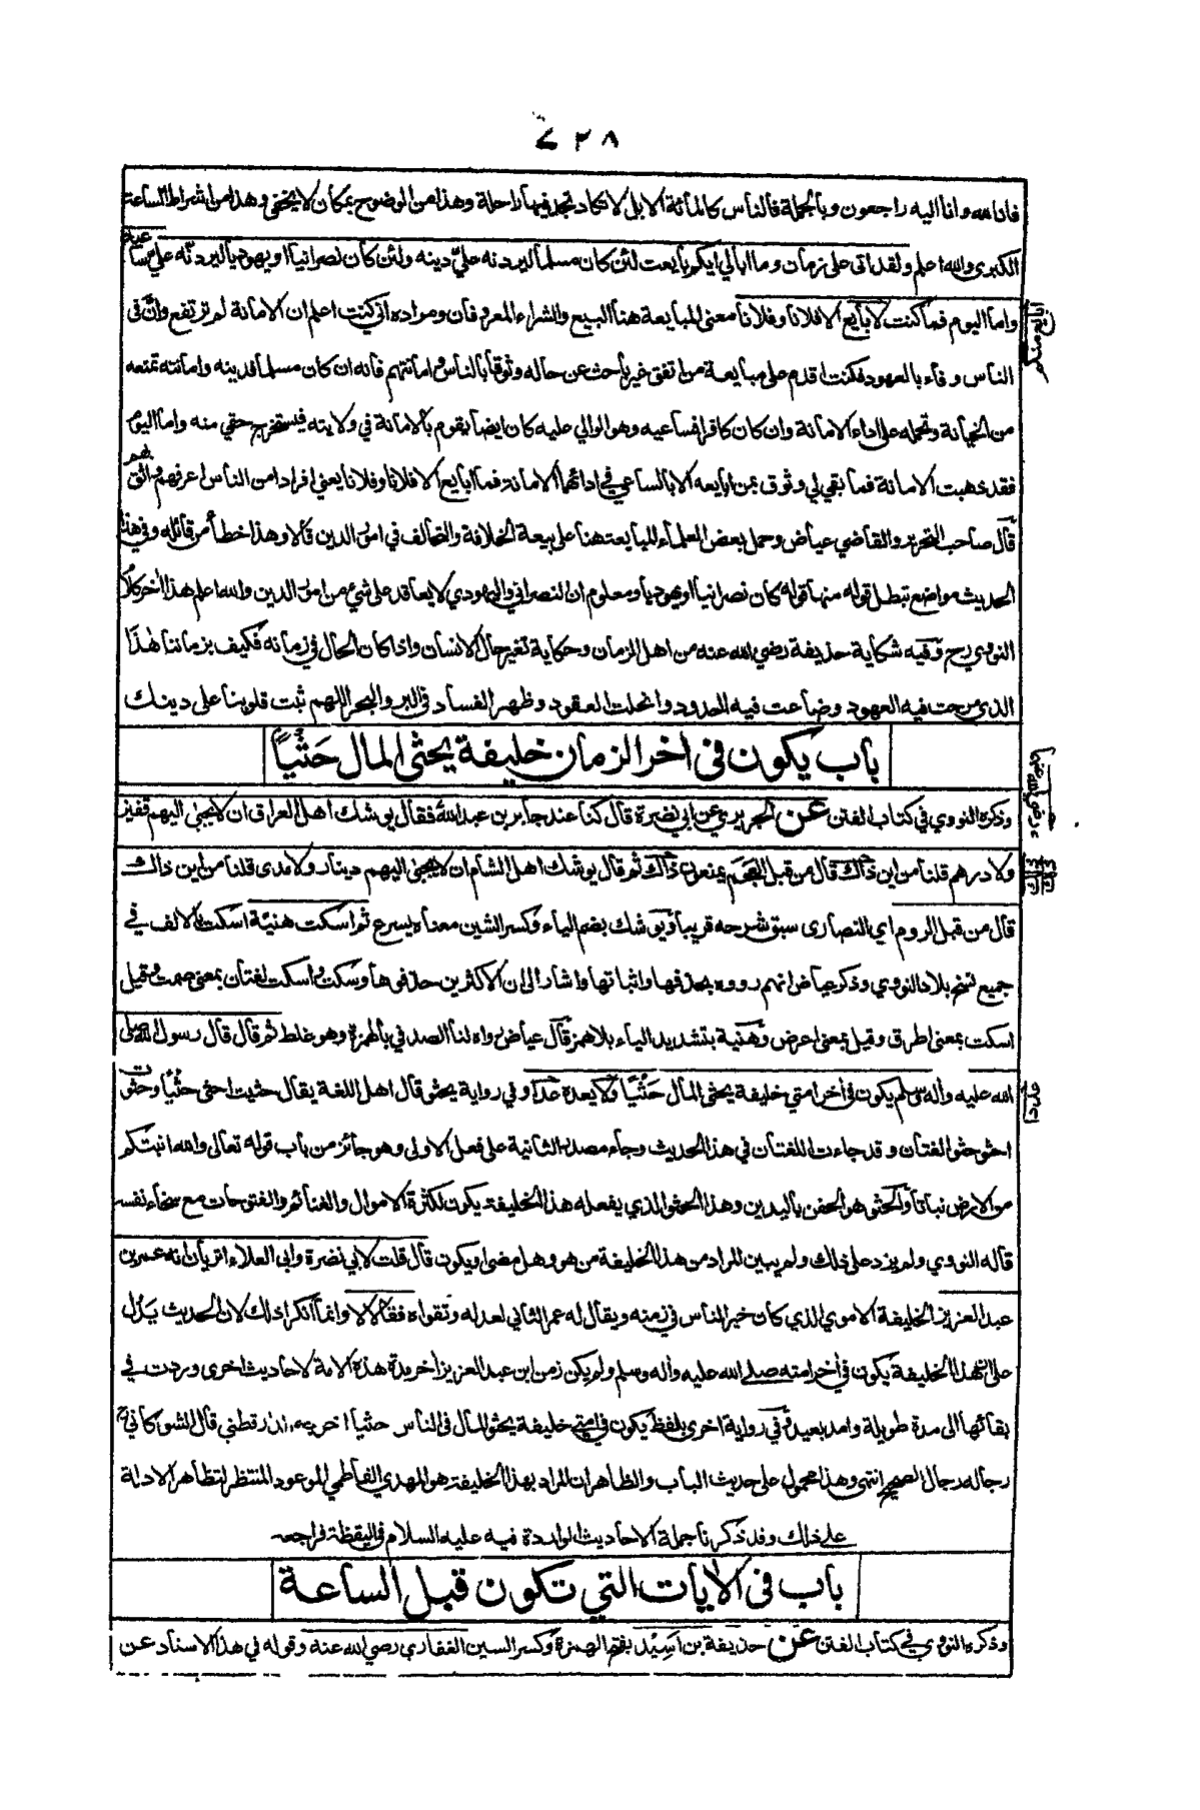 ٧٢٨
فانا لله وانا اليه راجعون وبالجملة فالناس كالمائة الابل لا تكاد تجد فيها راحلة وهذا من الوضوح بمكان لا يخفى وهذا من اشراط الساعة
الكبرى والله اعلم ولقد اتى على زمان وما ابالي ايكم بايعت لئن كان مسلما ليردنه عليّ دينه ولئن كان نصرانيا او يهوديا ليردنّه علي ساعيه
واما اليوم فما كنت لابايع الا فلانا وفلانا معنى المبايعة هنا البيع والشراء المعروفان ومراده اني كنت اعلم ان الامانة لم ترتفع وانّ في
الناس وفاء بالعهود فكنت اقدم على مبايعة من اتفق غير باحث عن حاله وثوقا بالناس وامانتهم فانه ان كان مسلما فدينه وامانته تمنعه
من الخيانة وتحمله على اداء الامانة وان كان كافرا فساعيه وهو الوالي عليه كان ايضا يقوم بالامانة في ولايته فيستخرج حقي منه واما اليوم
فقد ذهبت الامانة فما بقي لي وثوق بمن ابايعه الا بالساعي في ادائهما الامانة فما ابايع الا فلانا وفلانا يعني افرادا من الناس اعرفهم واثق بهم
قال صاحب التحرير والقاضي عياض وحمل بعض العلماء المبايعة هنا على بيعة الخلافة والتحالف في امور الدين قالا وهذا خطأ من قائله وفي هذا
الحديث مواضع تبطل قوله منها قوله كان نصرانيا او يهوديا ومعلوم ان النصراني واليهودي لا يعاقد على شيء من امور الدين والله اعلم هذا اخر كلام
النووي رح وفيه شكاية حذيفة رضي الله عنه من اهل الزمان وحكاية تغير حال الانسان واذا كان الحال في زمانه فكيف بزماننا لهذا
الذي مرجت فيه العهود وضاعت فيه الحدود وانحلت العقود وظهر الفساد في البر والبحر اللهم ثبت قلوبنا على دينك
باب يكون في اخر الزمان خليفة يحثى المال حَثْيًا
وذكره النووي في كتاب الفتن عن الجريري عن ابي نضرة قال كنا عند جابر بن عبد الله فقال يوشك اهل العراق ان لا يجبى اليهم قفيز
ولا درهم قلنا من اين ذاك قال من قبل العجم يمنعون ذاك ثم قال يوشك اهل الشام ان لا يجبى اليهم دينار ولا مدى قلنا من اين ذاك
قال من قبل الروم اي النصارى سبق شرحه قريبا ويوشك بضم الياء وكسر الشين معناه يسرع ثم اسكت هنيّة اسكت بالالف في
جميع نسخ بلاد النووي وذكر عياض انهم رووه بحذفها واثباتها واشار الى ان الاكثرين حذفوها وسكت واسكت لغتان بمعنى صمت وقيل
اسكت بمعنى اطرق وقيل بمعنى اعرض وهنية بتشديد الياء بلا همز قال عياض رواه لنا الصدفي بالهمزة وهو غلط ثم قال قال رسول الله صلى
الله عليه واله وسلم يكون في اخر امتي خليفة يحثى المال حَثْيًا ولا يعده عدا وفي رواية يحثو قال اهل اللغة يقال حثيت احثى حثيا وحثوت
احثو حثوا لغتان وقد جاءت اللغتان في هذا الحديث وجاء مصدر الثانية على فعل الاولى وهو جائز من باب قوله تعالى والله انبتكم
من الارض نباتا والحثو هو الحفن باليدين وهذا الحثو الذي يفعله هذا الخليفة يكون لكثرة الاموال والغنائم والفتوحات مع سخاء نفسه
قاله النووي ولم يزد على ذلك ولم يبين المراد من هذا الخليفة من هو وهل مضى او يكون قال قلت لابي نضرة وابي العلاء اتريان انه عمر بن
عبد العزيز الخليفة الاموي الذي كان خير الناس في زمنه ويقال له عمر الثاني لعدله وتقواه فقالا لا وانما انكرا ذلك لان الحديث يدل
على ان هذا الخليفة يكون في اخر امته صلى الله عليه واله وسلم ولم يكن زمن ابن عبد العزيز اخر مدة هذه الامة لاحاديث اخرى وردت في
بقائها الى مدة طويلة وامد بعيد وفي رواية اخرى بلفظ يكون في امتي خليفة يحثو المال في الناس حثيا اخرجه الدارقطني قال الشوكاني رح
رجاله رجال الصحيح انتهى وهذا محمول على حديث الباب والظاهر ان المراد بهذا الخليفة هو المهدي الفاطمي الموعود المنتظر لتظاهر الادلة
على ذلك وقد ذكرنا جملة الاحاديث الواردة فيه عليه السلام في اليقظة فراجعه
باب في الايات التي تكون قبل الساعة
وذكره النووي في كتاب الفتن عن حذيفة بن اَسِيْد بفتح الهمزة وكسر السين الغفاري رضي الله عنه وقوله في هذا الاسناد عن